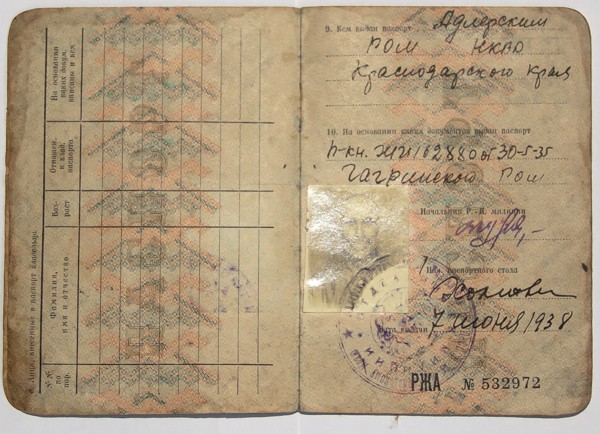 8. Лица, внесенные в паспорт владельца:
№№ по пор.
Фамилия, имя и отчество
Воз-раст
Отношен. к влад. паспорта
На основании каких докум. вписаны и кем
9. Кем выдан паспорт Адлерским
РОМ НКВД
Краснодарского края
10. На основании каких документов выдан паспорт
п-кн. 162880 от 30-5-35
Гагринской РОМ
Начальник Р.-К. милиции
Нач. паспортного стола
Дата выдачи 7 июня 1938
РЖА № 532972